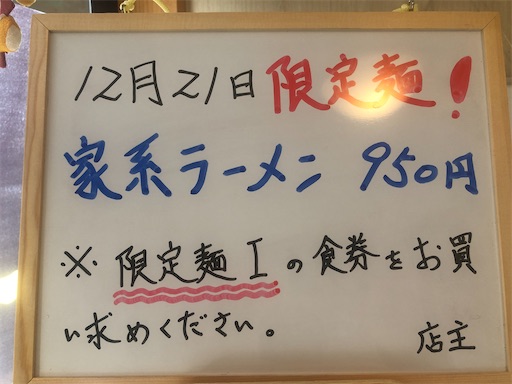 12月21日限定麺!
家系ラーメン 950円
※ 限定麺Iの食券をお買
い求めください。
店主